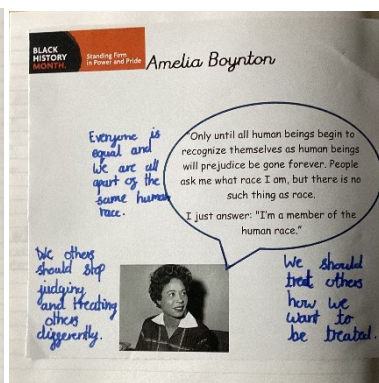 BLACK
HISTORY
MONTH.
Standing Firm
in Power and Pride
Amelia Boynton
Everyone is
equal and
we are all
apart of the
same human
race.
"Only until all human beings begin to
recognize themselves as human beings
will prejudice be gone forever. People
ask me what race I am, but there is no
such thing as race.
I just answer: "I'm a member of the
human race."
We others
should stop
judging
and treating
others
differently.
We should
treat others
how we
want to
be treated.